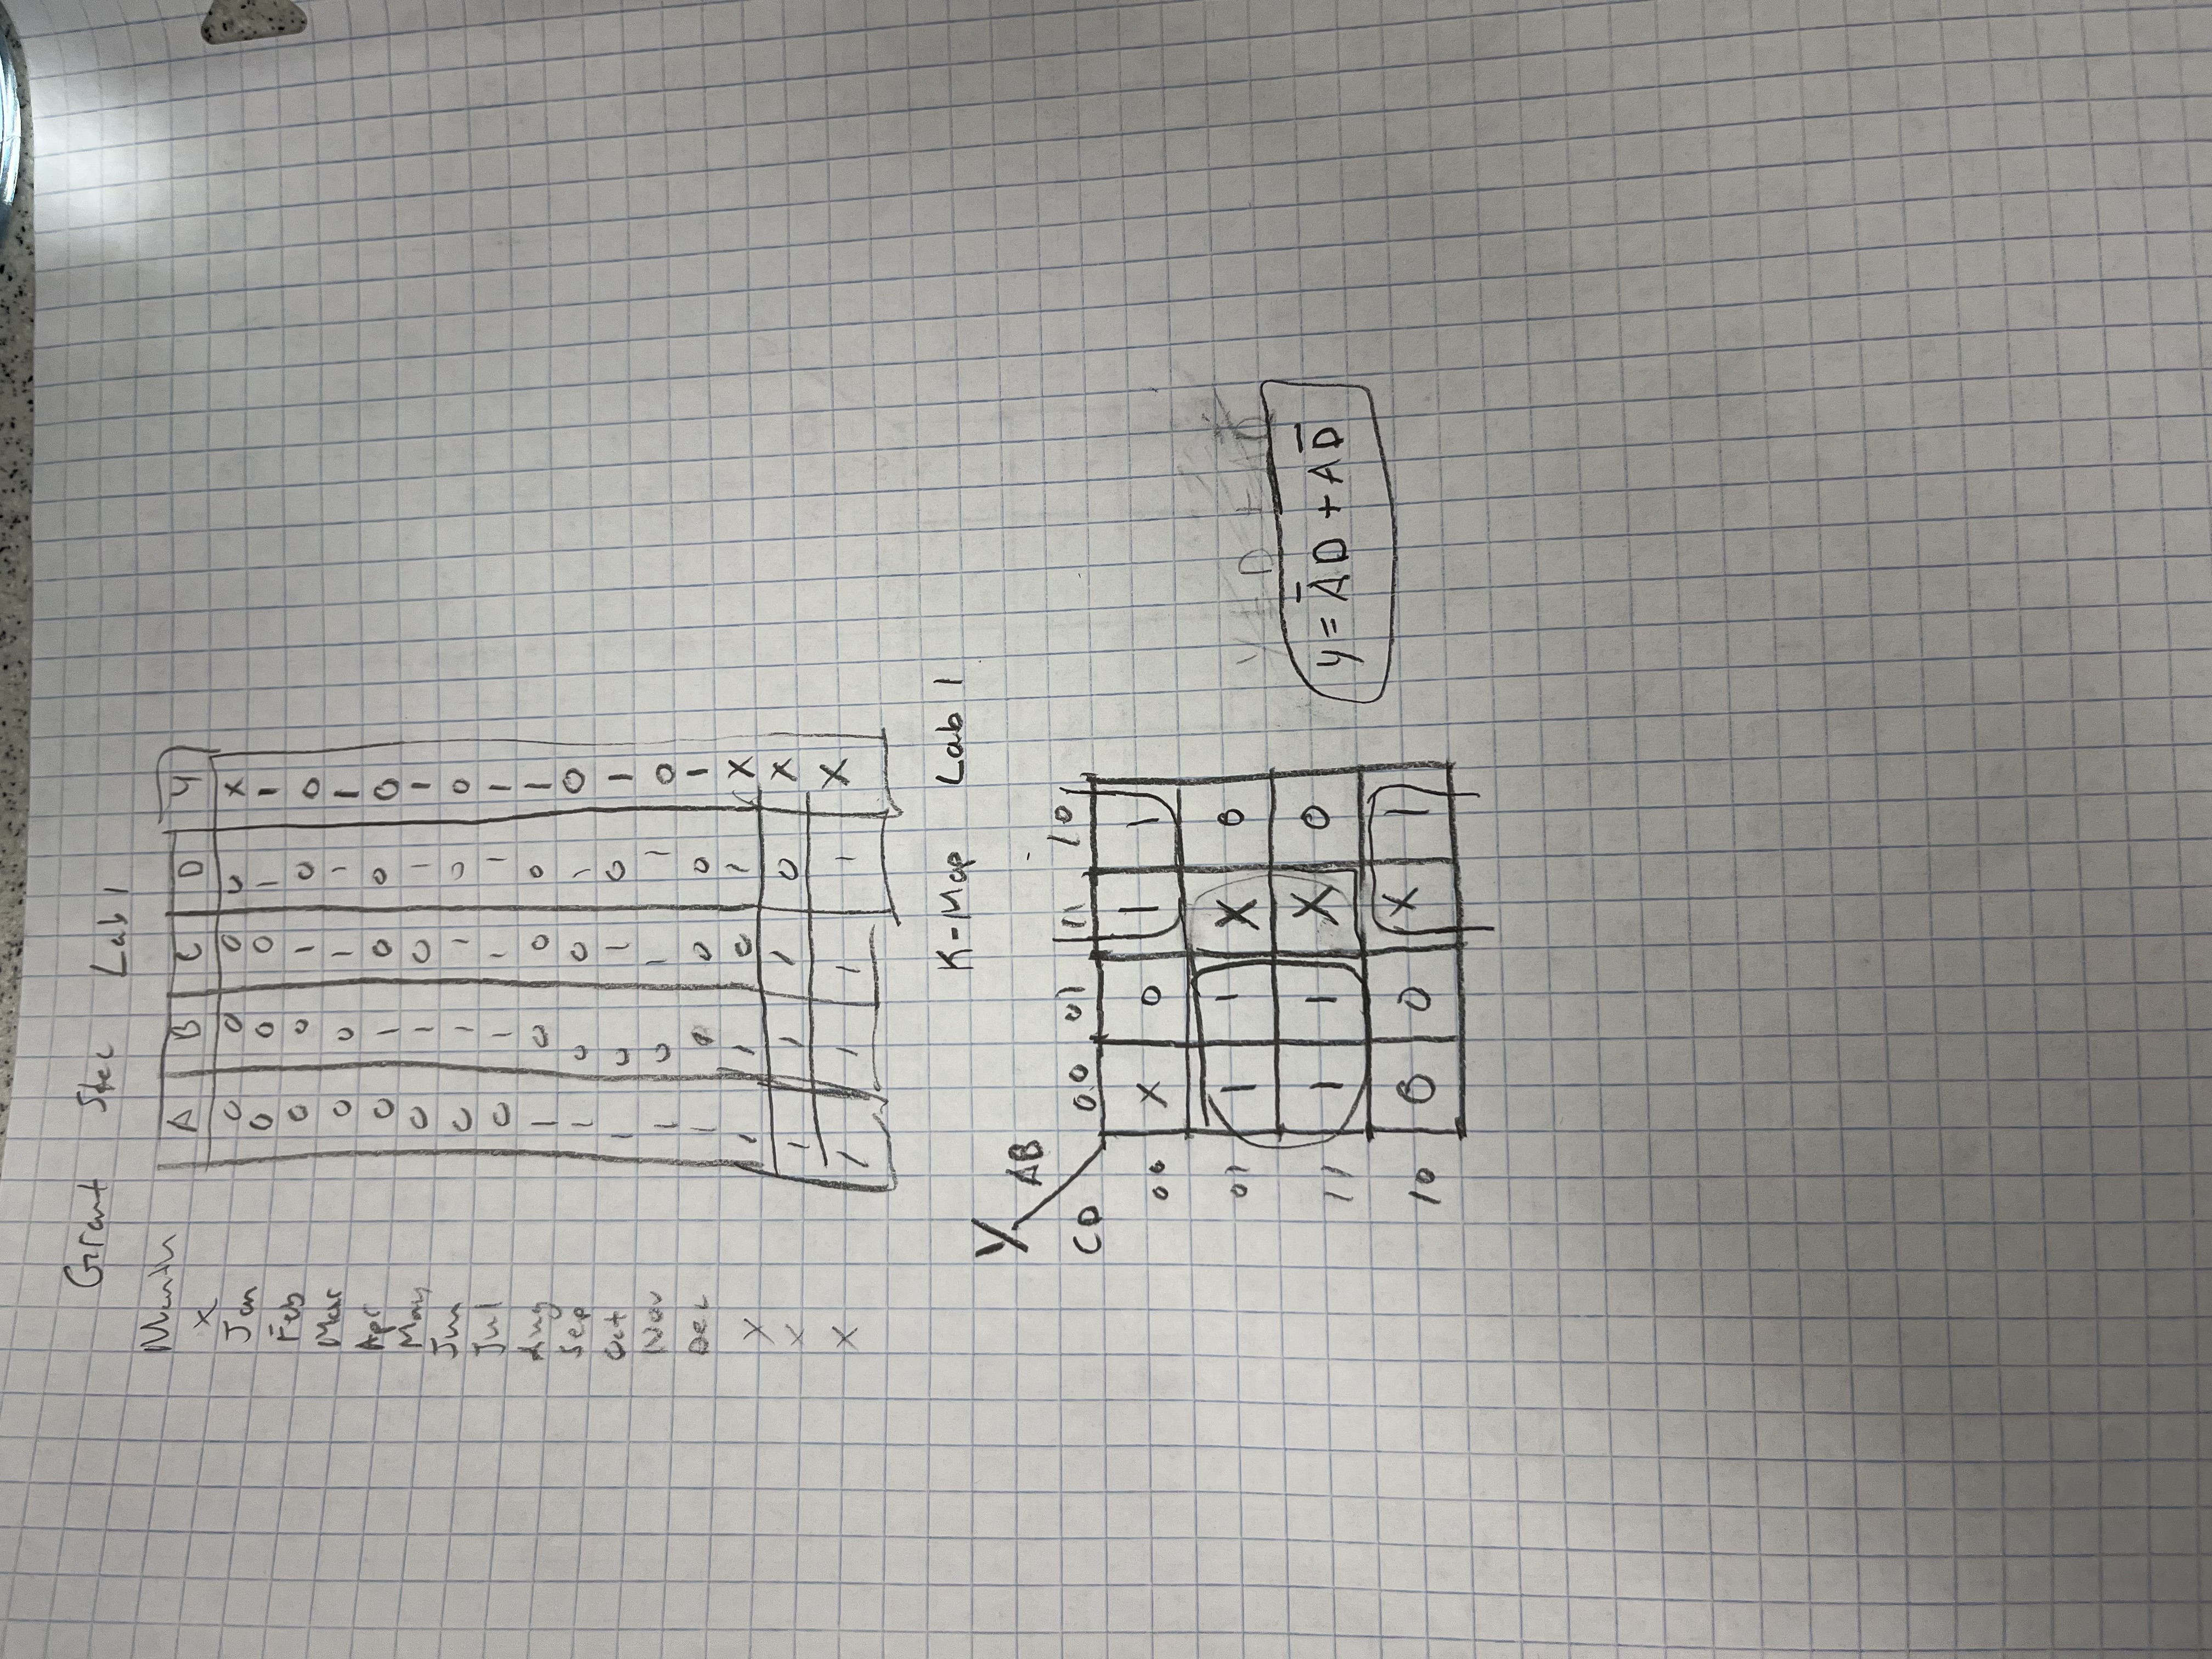 Grant Stec Lab 1
Month A B C D Y
X 0 0 0 0 X
Jan 0 0 0 1 1
Feb 0 0 1 0 0
Mar 0 0 1 1 1
Apr 0 1 0 0 0
May 0 1 0 1 1
Jun 0 1 1 0 0
Jul 0 1 1 1 1
Aug 1 0 0 0 1
Sep 1 0 0 1 0
Oct 1 0 1 0 1
Nov 1 0 1 1 0
Dec 1 1 0 0 1
X 1 1 0 1 X
X 1 1 1 0 X
X 1 1 1 1 X
K-Map Lab 1
Y AB
CD 00 01 11 10
00 X 0 1 1
01 1 1 X 0
11 1 1 X 0
10 0 0 X 1
Y = A̅D + AD̅